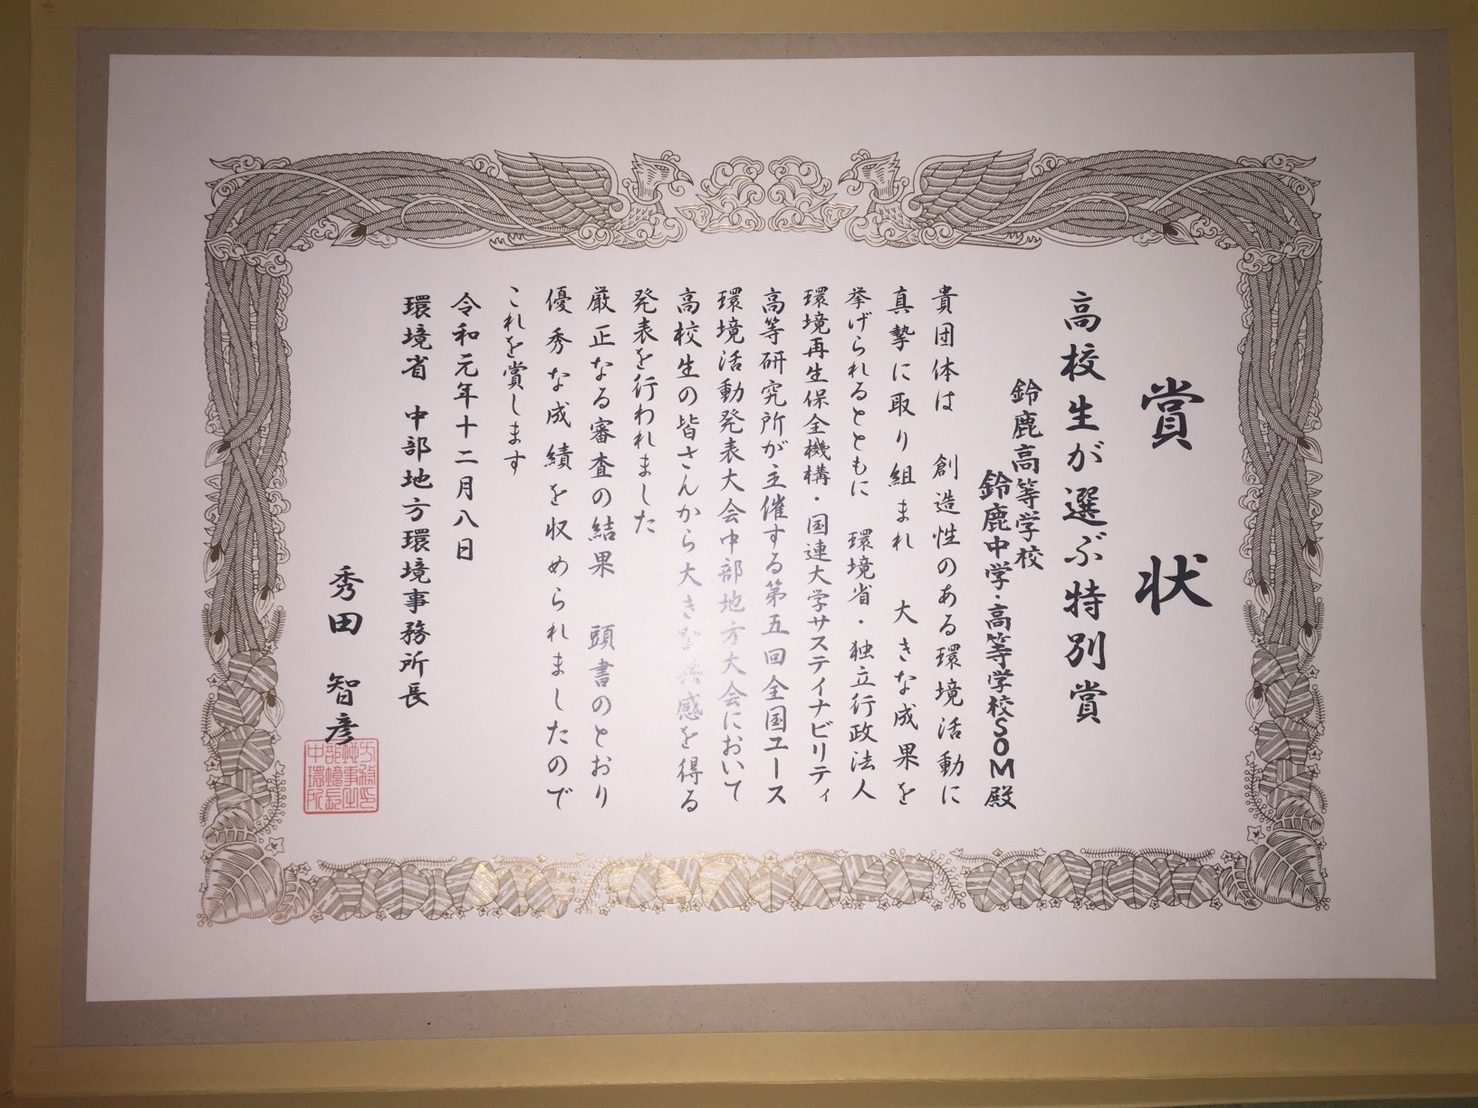 賞状
高校生が選ぶ特別賞
鈴鹿高等学校
鈴鹿中学・高等学校SOM殿
貴団体は 創造性のある環境活動に
真摯に取り組まれ 大きな成果を
挙げられるとともに 環境省・独立行政法人
環境再生保全機構・国連大学サステイナビリティ
高等研究所が主催する第五回全国ユース
環境活動発表大会中部地方大会において
高校生の皆さんから大きな共感を得る
発表を行われました
厳正なる審査の結果 頭書のとおり
優秀な成績を収められましたので
これを賞します
令和元年十二月八日
環境省 中部地方環境事務所長
秀田 智彦